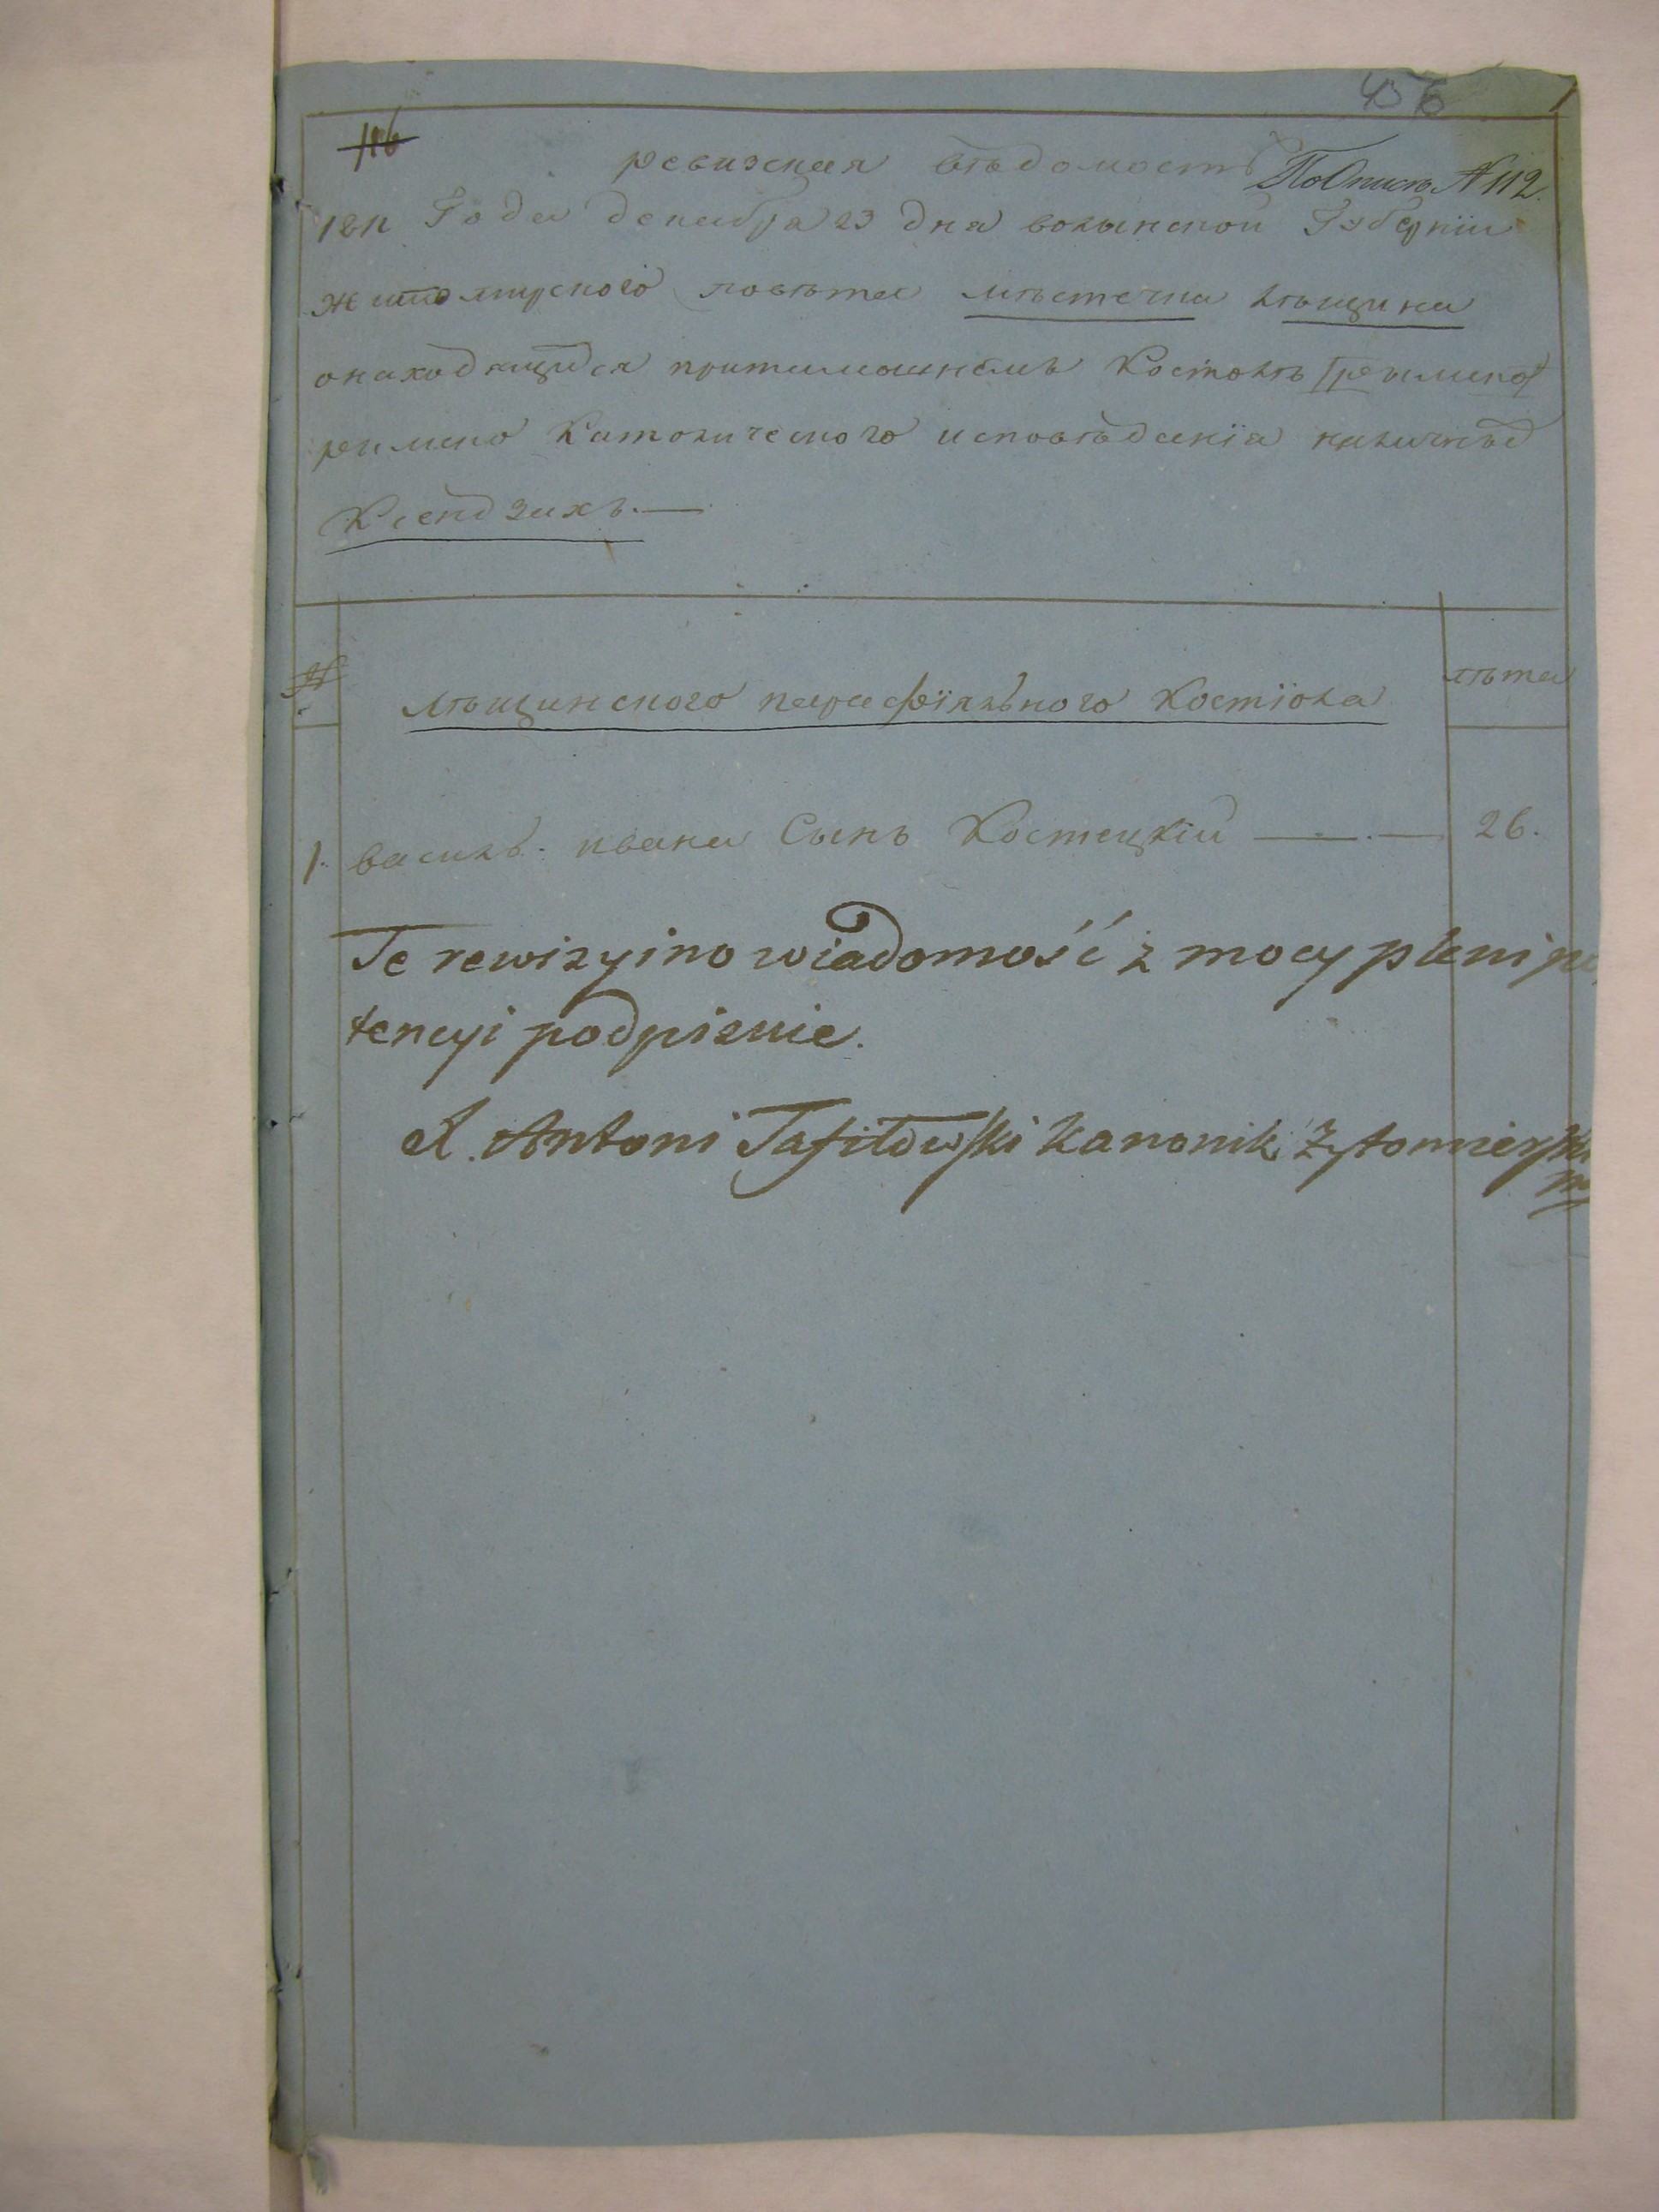 116
ревизская вѣдомость По Описи № 112.
1811 Года декабря 23 дня волынской Губернїи
житомирского повѣта мѣстечка лѣщина
онаходящихся притамошнемъ Костюлѣ
римско Католического исповѣданїя
Ксендзахъ.—
№ лѣщинского парафїяльного Костїола лѣта
1. василь ивана Сынъ Костецкїй — 26.
Te rewizyino wiadomość z mocy plenipo
tencyi podpisuie.
X. Antoni Tafiłowski kanonik Zytomierski